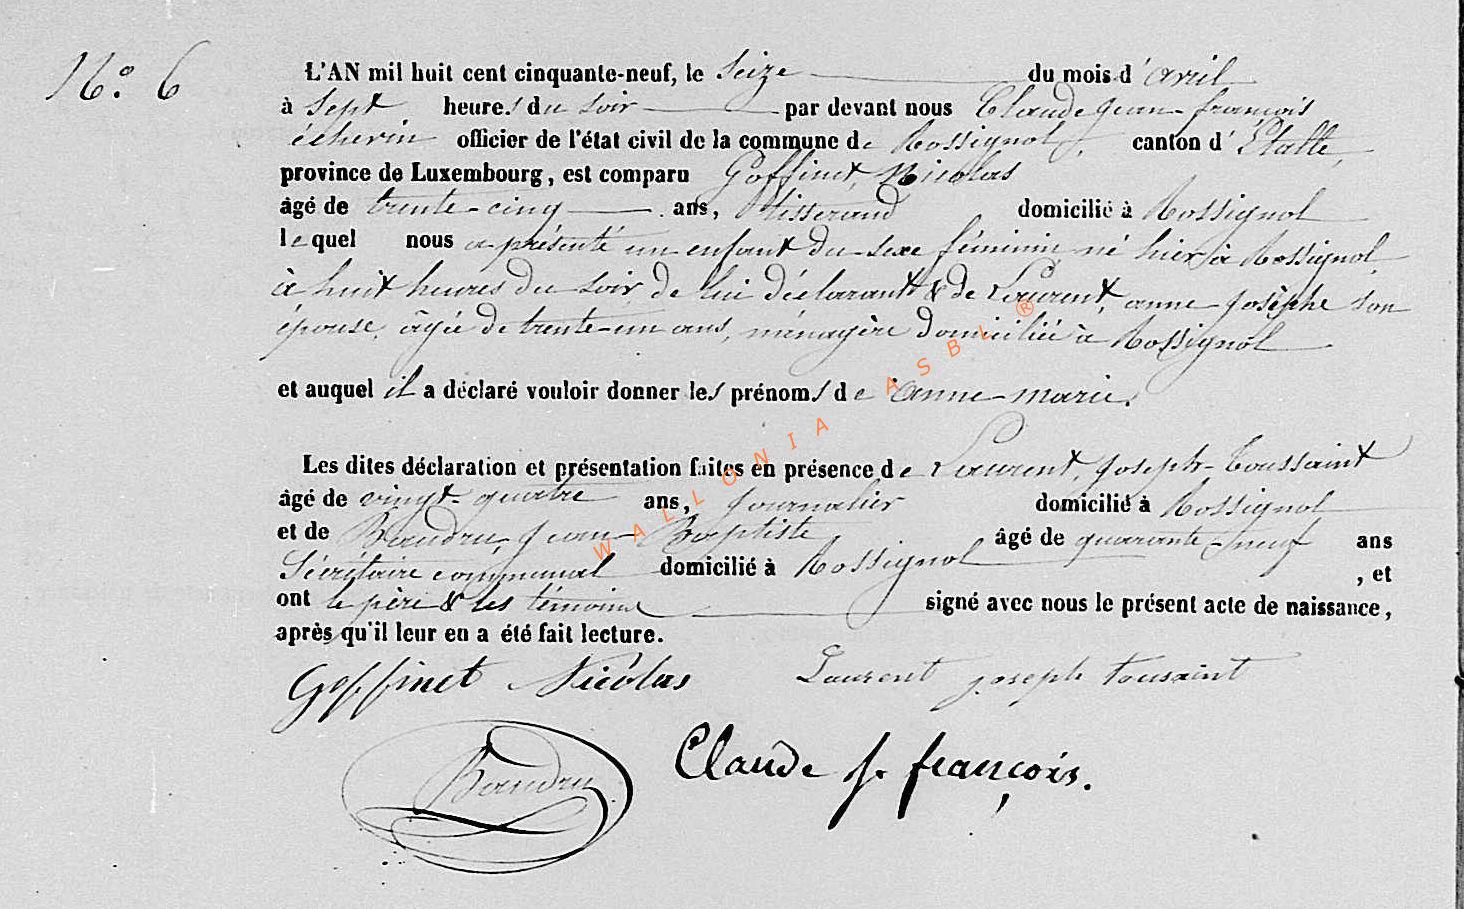 N.° 6
L'AN mil huit cent cinquante-neuf, le seize du mois d'avril
à sept heures du soir par devant nous Claude jean-françois
échevin officier de l'état civil de la commune de Rossignol, canton d'Etalle,
province de Luxembourg, est comparu Goffinet, Nicolas
âgé de trente-cinq ans, tisserand domicilié à Rossignol
lequel nous a présenté un enfant du sexe féminin né hier à Rossignol,
à huit heures du soir, de lui déclarant & de Laurent, anne-josèphe son
épouse, âgée de trente-un ans, ménagère domiciliée à Rossignol
et auquel il a déclaré vouloir donner les prénoms de anne-marie.
Les dites déclaration et présentation faites en présence de Laurent, joseph-toussaint
âgé de vingt-quatre ans, journalier domicilié à Rossignol
et de Baudru, jean-Baptiste, âgé de quarante-neuf ans
Sécrétaire communal domicilié à Rossignol , et
ont le père & les témoins signé avec nous le présent acte de naissance,
après qu'il leur en a été fait lecture.
Goffinet Nicolas Laurent joseph tousaint
Baudru Claude j. françois.
WALLONIA ASBL ®